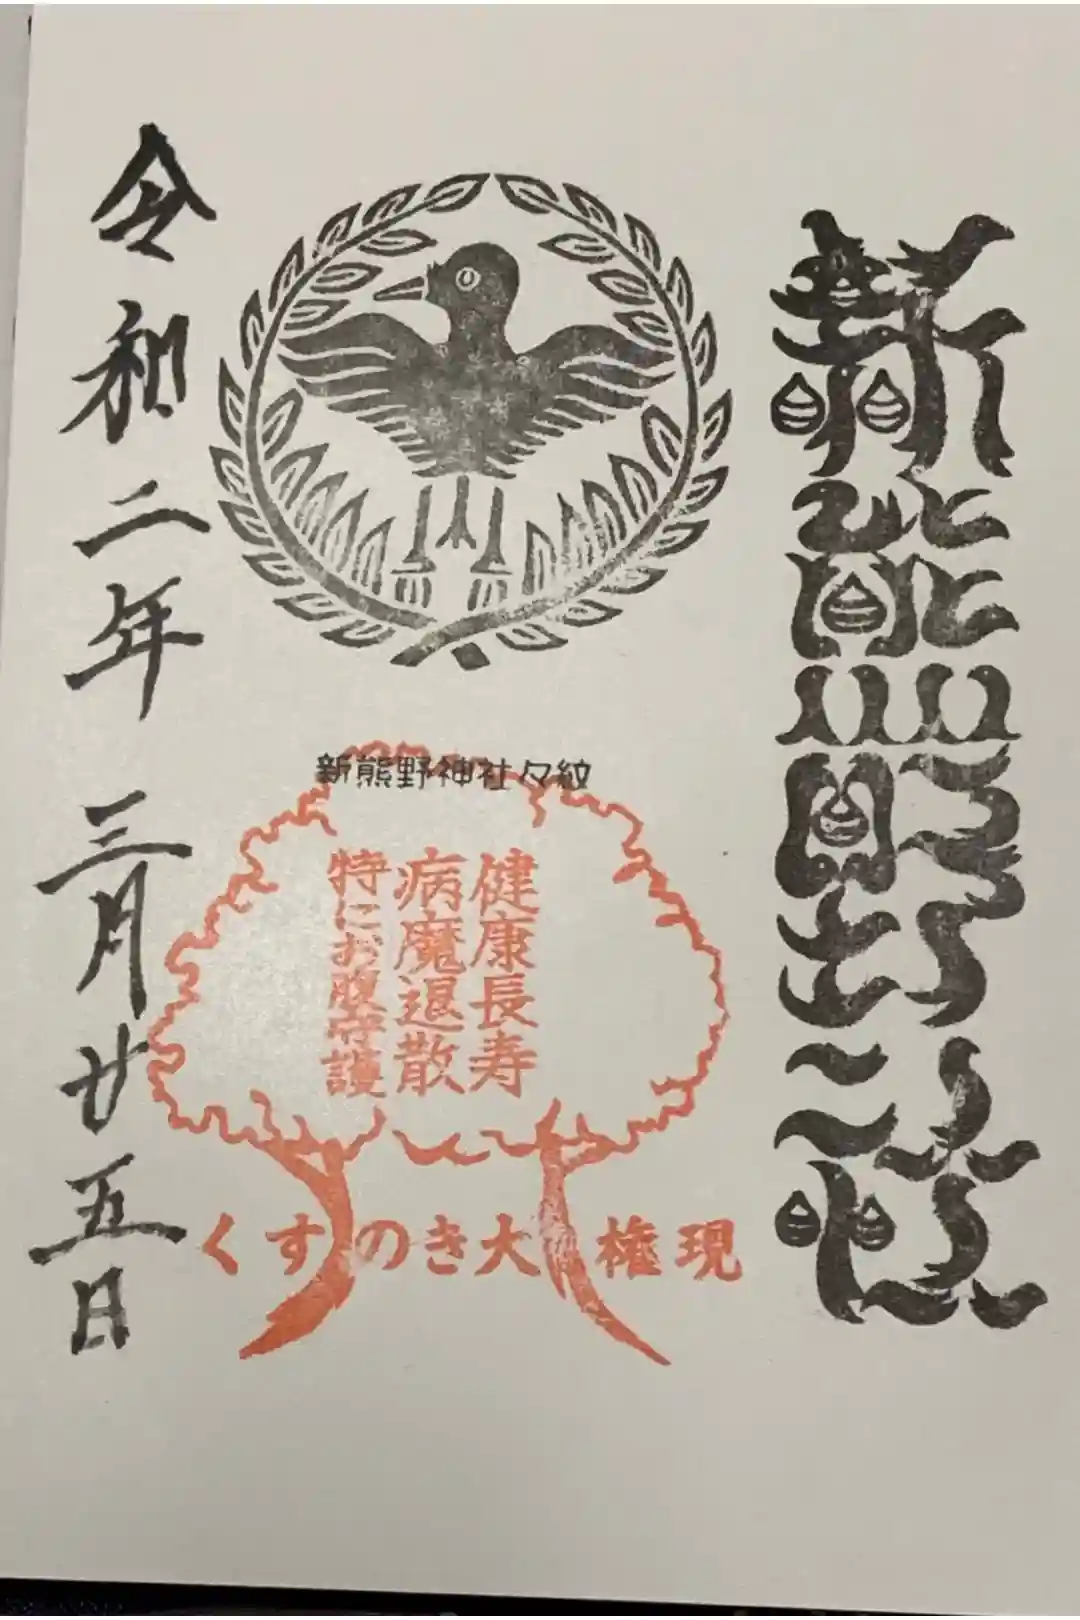 新熊野神社
新熊野神社々紋
健康長寿
病魔退散
特にお腹守護
くすのき大権現
令和二年三月廿五日